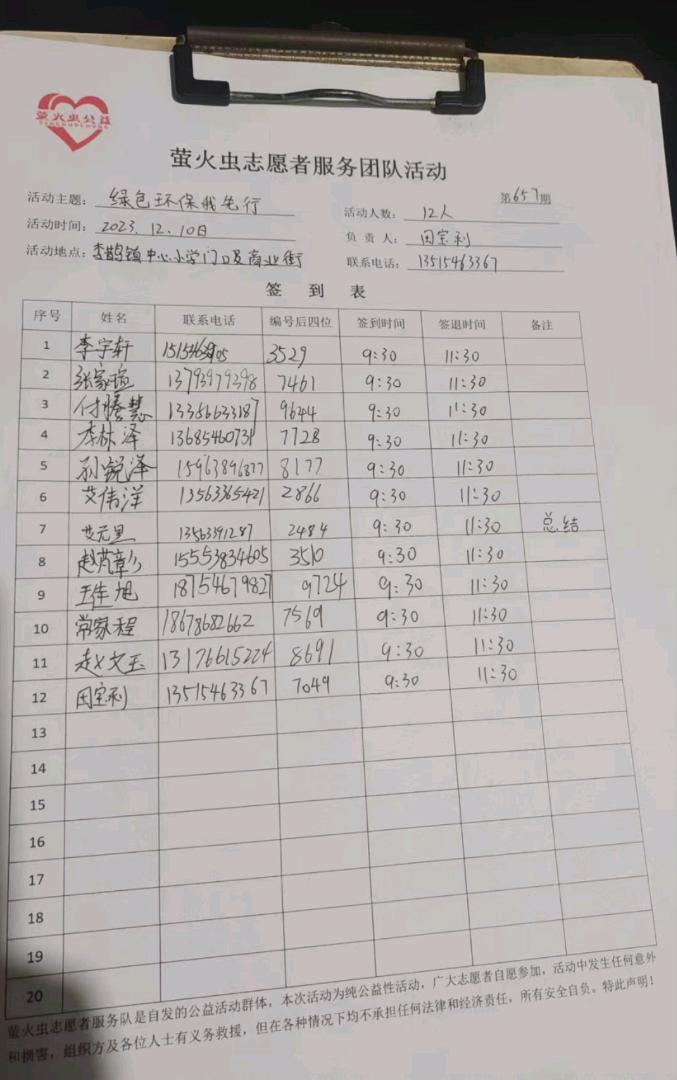 萤火虫公益
萤火虫志愿者服务团队活动
第657期
活动主题： 绿色环保我先行 活动人数： 12人
活动时间： 2023.12.10日 负责人： 田宝利
活动地点： 李鹊镇中心小学门口及商业街 联系电话： 13515463367
签到表
序号 姓名 联系电话 编号后四位 签到时间 签退时间 备注
1 李宇轩 3529 9:30 11:30
2 张家瑞 13793979398 7461 9:30 11:30
3 付慧 13386633187 9644 9:30 11:30
4 李林泽 13685460731 7728 9:30 11:30
5 孙锐泽 15963896877 8177 9:30 11:30
6 艾伟洋 13563365421 2866 9:30 11:30
7 13563391287 2484 9:30 11:30 总结
8 赵芃彰 15553834605 3510 9:30 11:30
9 王佳旭 18754679827 9724 9:30 11:30
10 常家程 18678682662 7569 9:30 11:30
11 赵文玉 13176615224 8691 9:30 11:30
12 田宝利 13515463367 7049 9:30 11:30
13
14
15
16
17
18
19
20
萤火虫志愿者服务队是自发的公益活动群体，本次活动为纯公益性活动，广大志愿者自愿参加，活动中发生任何意外
和损害，组织方及各位人士有义务救援，但在各种情况下均不承担任何法律和经济责任，所有安全自负。特此声明！